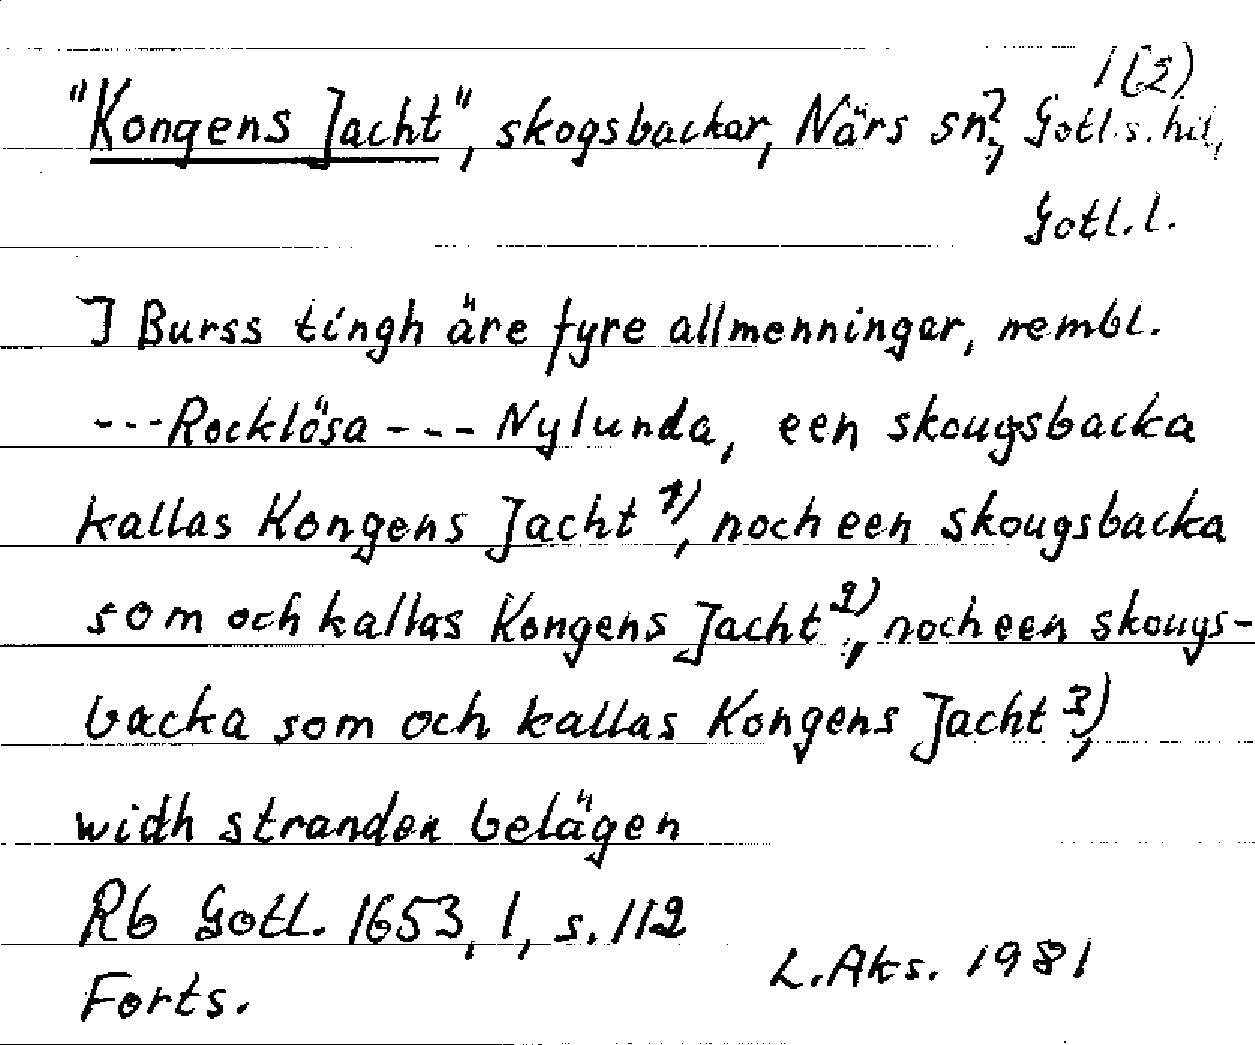 1(2)
"Kongens Jacht", skogsbackar, Närs sn?, Gotl. s. hd,
Gotl. l.
I Burss tingh äre fyre allmenningar, nembl.
---Rocklösa --- Nylunda, een skougsbacka
kallas Kongens Jacht 1), noch een skougsbacka
som och kallas Kongens Jacht 2), noch een skougs-
backa som och kallas Kongens Jacht 3),
widh stranden belägen
Rb Gotl. 1653, 1, s. 112
L. Aks. 1981
Forts.